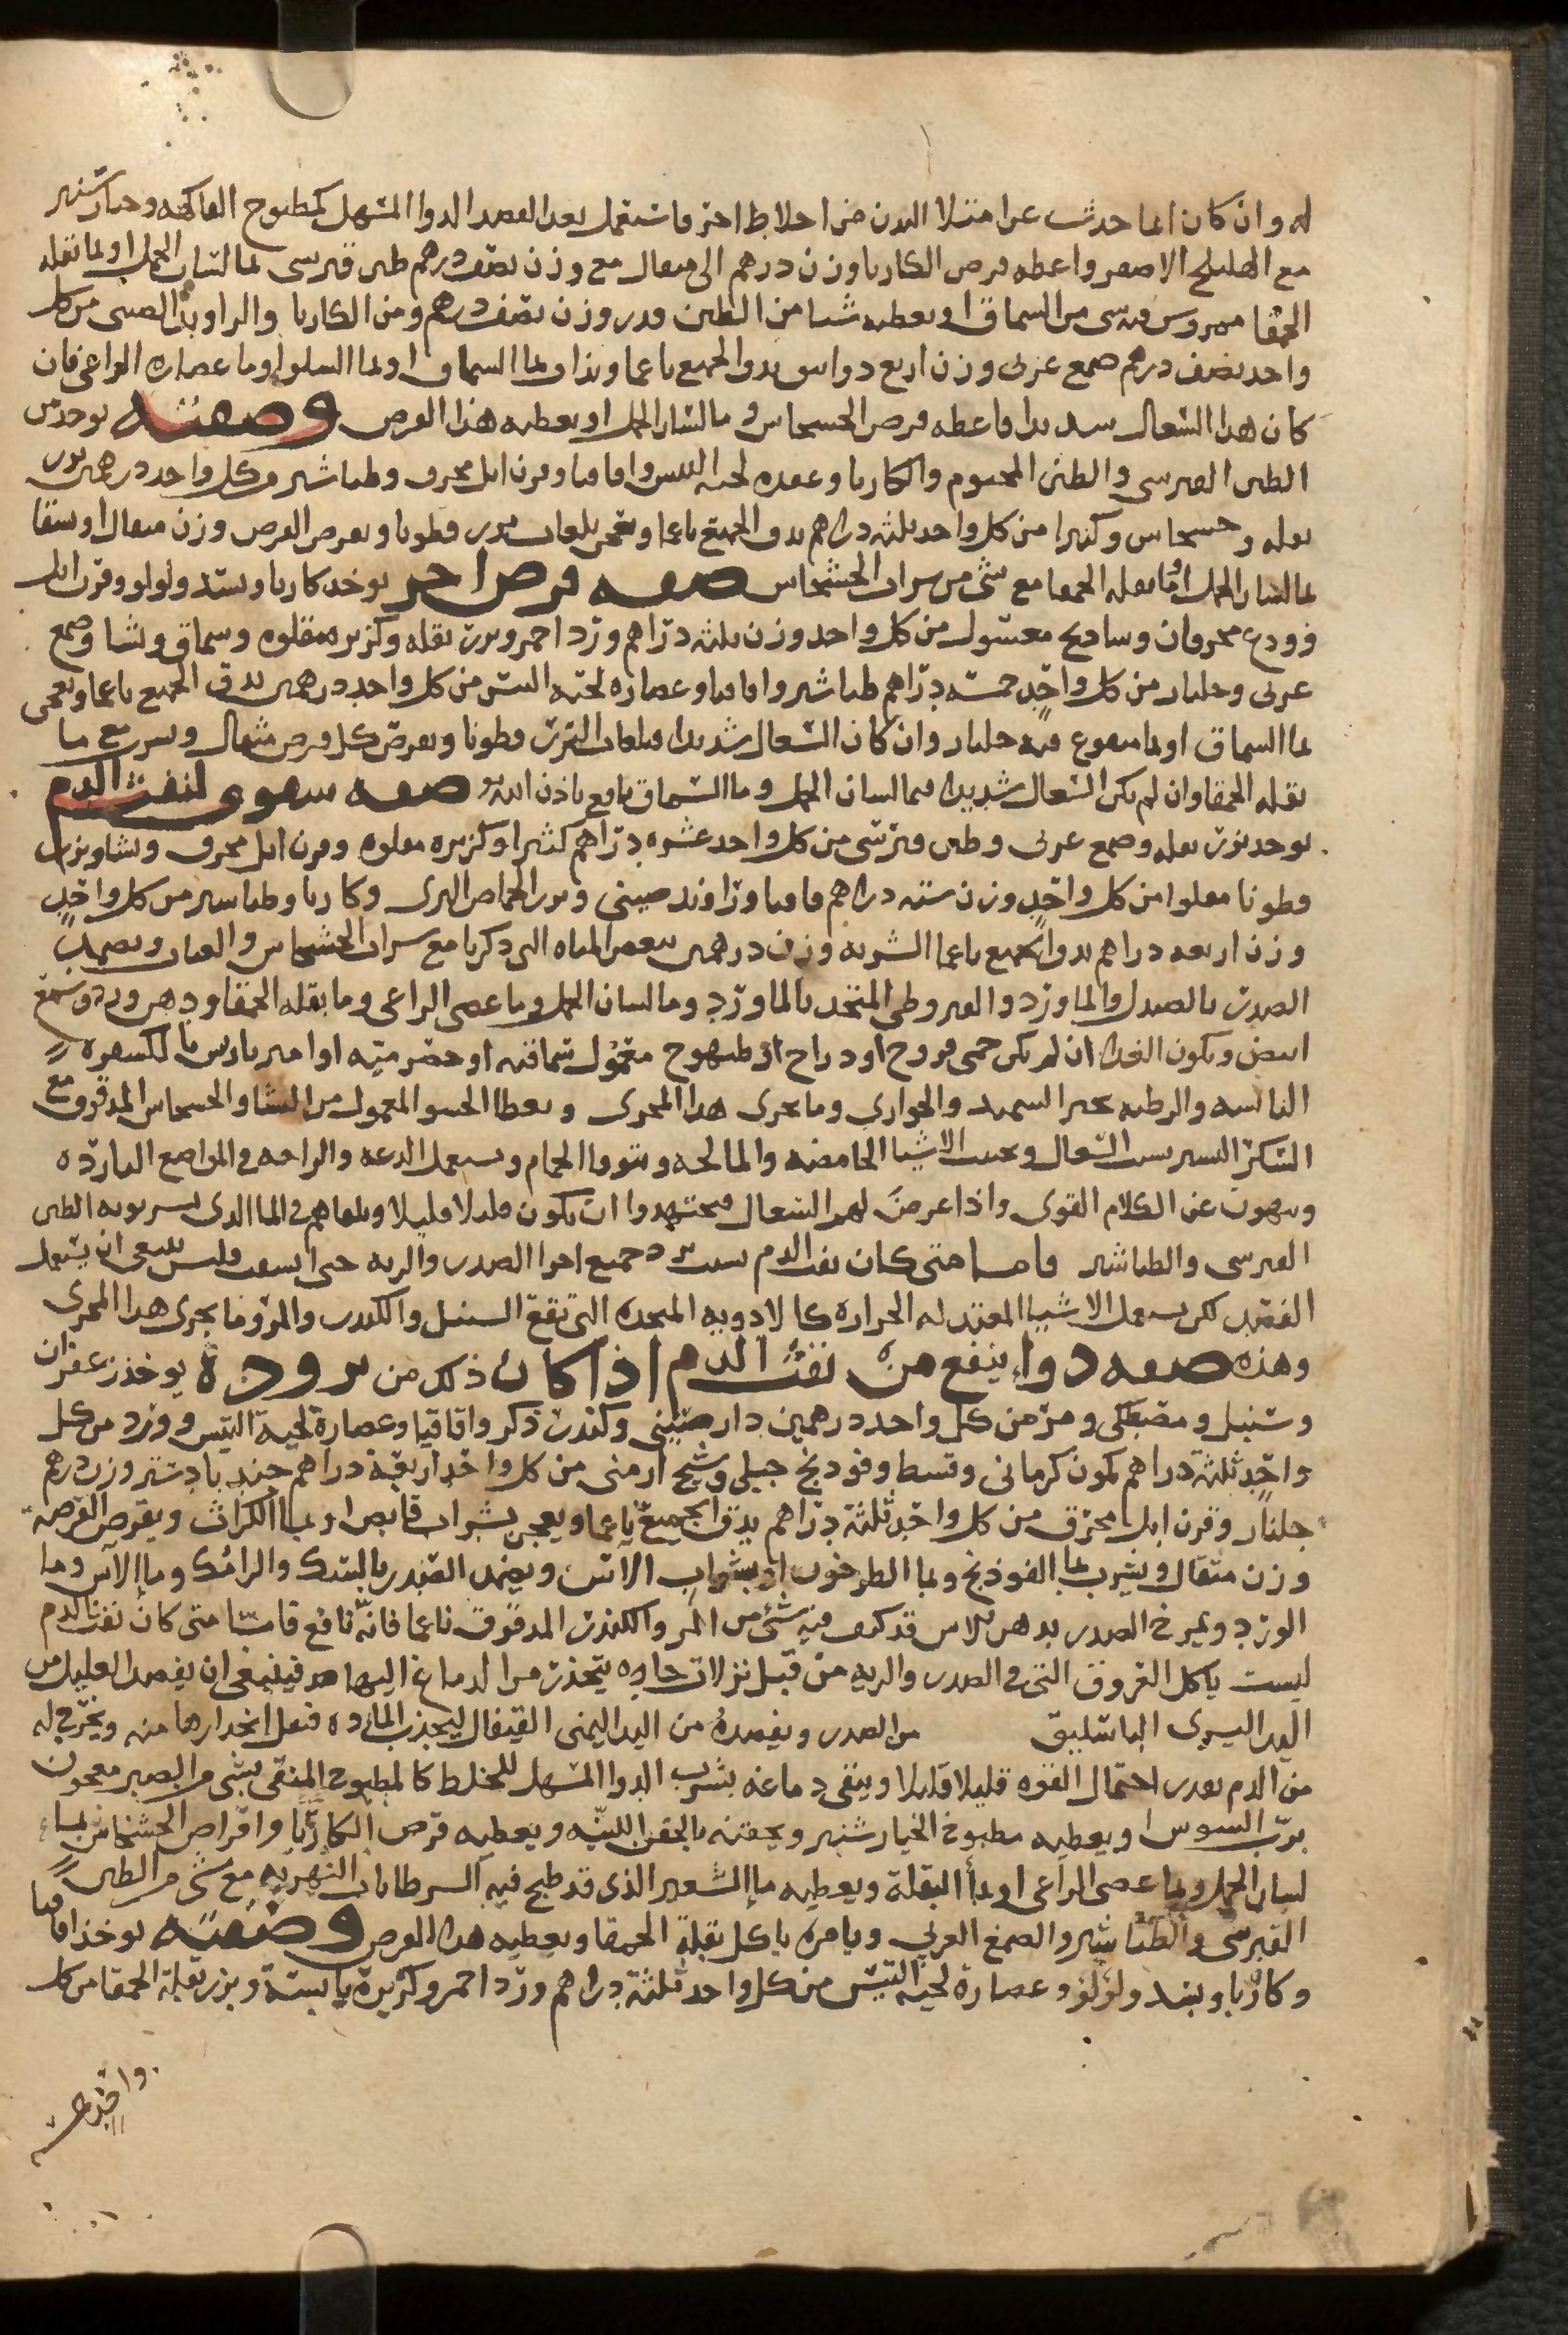 له وان كان انما حدث عن امتلا البدن من اخلاط اخر فاستعمل بعد الفصد الدوا المسهل كمطبوخ الفاكهه وخيار شنبر
مع الهليلج الاصفر واعطه قرص الكاربا وزن درهم الى مثقال مع وزن نصف درهم طين قبرسي بما لسان الحمل او بما بقله
الحمقا ممروس فيه شي من السماق او يعطيه شيا من الطين قدر وزن نصف درهم ومن الكاربا والراوند الصيني من كل
واحد نصف درهم صمغ عربي وزن اربع دوانيق يدق الجميع ناعما ويداف بما السماق او بما السلو او ما عصاره الراعي فان
كان هذا السعال شديدا فاعطه قرص الخشخاش و ما لسان الحمل او يعطيه هذا القرص وصفته يوخذ من
الطين القبرسي والطين المختوم والكاربا وعصاره لحيه التيس واقاقيا وقرن ايل محرق وطباشير من كل واحد درهمين بزر
بقله وخشخاش وكثيرا من كل واحد ثلثه دراهم يدق الجميع ناعما ويعجن بلعاب بزر قطونا ويقرص القرص وزن مثقال او سقا
بما لسان الحمل او ما بقله الحمقا مع شي من شراب الخشخاش صفه قرص اخر يوخذ كاربا وبسد ولولو وقرن ايل
وودع محرقان وسادنج مغسول من كل واحد وزن ثلثه دراهم ورد احمر وبزر بقله وكزبره مقلوه وسماق ونشا وصمغ
عربي وجلنار من كل واحد خمسه دراهم طباشير واقاقيا وعصاره لحيه التيس من كل واحد درهمين يدق الجميع ناعما ويعجن
بما السماق او بما منقوع فيه جلنار وان كان السعال شديدا فبلعاب البزر قطونا ويقرص كل قرص مثقال ويشرب مع ما
بقله الحمقا وان لم يكن السعال شديدا فبما لسان الحمل و ما السماق نافع باذن الله صفه سفوف لنفث الدم
يوخذ بزر بقله وصمغ عربي وطين قبرسي من كل واحد عشره دراهم كثيرا وكزبره مقلوه وقرن ايل محرق ونشا وبزر
قطونا مقلوا من كل واحد وزن سته دراهم اقاقيا وراوند صيني وبزر الحماض البري وكاربا وطباشير من كل واحد
وزن اربعه دراهم يدق الجميع ناعما الشربه وزن درهمين ببعض المياه التي ذكرنا مع شراب الخشخاش والعناب ويضمد
الصدر بالصندل والماورد والقيروطي المتخذ بالماورد وما لسان الحمل وما عصى الراعي وما بقله الحمقا ودهن ورد وشمع
ابيض ويكون الغذا ان لم يكن حمى فروج او دراج او طيهوج معمول سماقيه او حصرميه او امير باريس بالكسفره
اليابسه والرطبه بخبز السميد والحواري وما يجري هذا المجرى ويعطا الحسو المعمول من النشا والخشخاش المدقوق مع
السكر اليسير بسبب السعال ويجنب الاشيا الحامضه والمالحه ويتوقا الحمام ويستعمل الدعه والراحه في المواضع البارده
وينهون عن الكلام القوي واذا عرض لهم السعال فيجتهدوا ان يكون قليلا قليلا ويلقاهم في الما الذي يشربونه الطين
القبرسي والطباشير فاما متى كان نفث الدم بسبب برد جميع اجزا الصدر والريه حتى ... فليس ينبغي ان يستعمل
الفصد لكن يستعمل الاشيا المعتدله الحراره كالادويه المتخذه التي تقع السنبل والكندر والمر وما يجري هذا المجرى
وهذه صفه دوا ينفع من نفث الدم اذا كان ذلك من بروده يوخذ زعفران
وسنبل ومصطكي ومر من كل واحد درهمين دار صيني وكندر ذكر واقاقيا وعصارة لحية التيس وورد من كل
واحد ثلثة دراهم كمون كرماني وقسط وفودنج جبلي وشيح ارمني من كل واحد اربعة دراهم جندبادستر وزن درهم
جلنار وقرن ايل محرق من كل واحد ثلثة دراهم يدق الجميع ناعما ويعجن بشراب قابض او بما الكراث ويقرص القرصه
وزن مثقال ويشرب بما الفودنج وبما الطرخون او بشراب الاس ويضمد الصدر بالسك والرامك وما الآس وما
الورد ويمرخ الصدر بدهن ناردين قد ... فيه شئ من المر والكندر المدقوق ناعما فانه نافع فاما متى كان نفث الدم
ليست ياكل العروق التي في الصدر والريه من قبل نزلات حاده يتحدر من الدماغ اليهما فينبغي ان يفصد العليل من
اليد اليسرى الباسليق من الصدر ويفصده من اليد اليمنى القيفال ليجذب الماده فتعل انحدارها منه ويخرج له
من الدم بقدر احتمال القوه قليلا قليلا وينقى دماغه بشرب الدوا المسهل للخلط كالمطبوخ المنقى بشي من الصبر معجون
برب السوس او يعطيه مطبوخ الخيار شنبر ويحقنه بالحقن اللينه ويعطيه قرص الكاربا واقراص الخشخاش بما
لسان الحمل وبما عصى الراعي او بما البقلة ويعطيه ما الشعير الذي قد طبخ فيه السرطانات النهريه مع شي من الطين
القبرسي والطباشير والصمغ العربي ويامره باكل بقلة الحمقا ويعطيه هذا القرص وصفته يوخذ اقاقيا
وكاربا وبسد ولؤلؤ وعصارة لحية التيس من كل واحد ثلثة دراهم ورد احمر وكزبرة يابسة وبزر بقلة الحمقا من كل
واحد